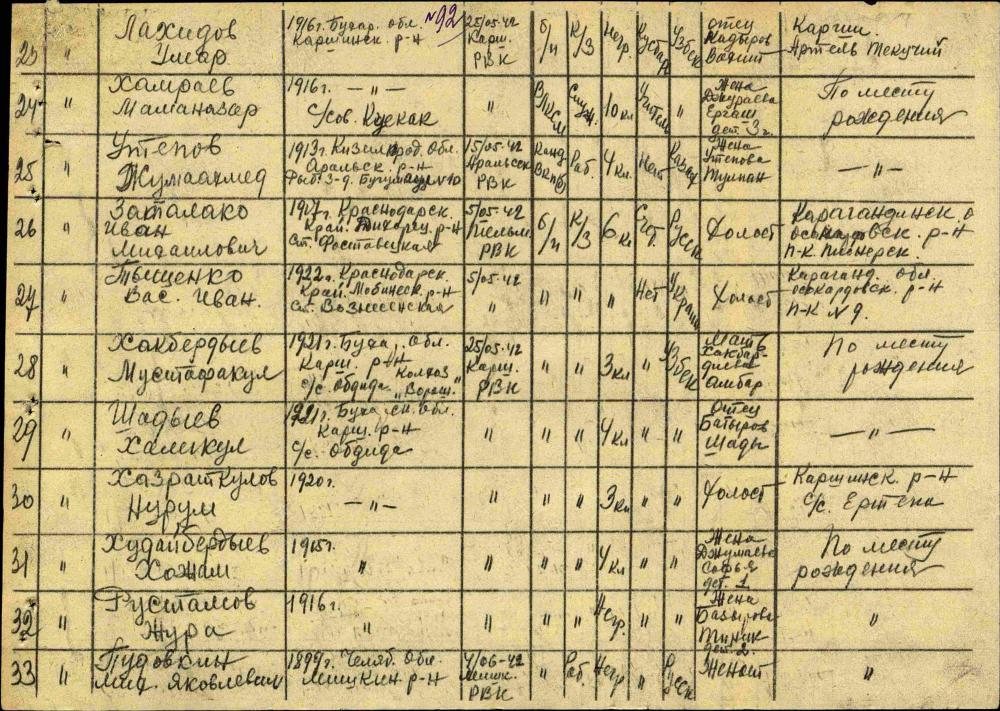 №92
23 " Лахидов Умар 1916г. Бухар. обл. Каршинск. р-н 25/05-42 Карш. РВК б/п К/З Негр. Узбек отец Кадыров Карши. Артель Текучий
24 " Хамраев Маманазар 1916г. —"— С/сов. Кускак " ВЛКСМ Служ. 10 кл Учитель " Жена Джураева Ергаш дет. 3 г. По месту рождения
25 " Утепов Жумаахмед 1913г. Кизилорд. обл. Аральск. р-н Рыб. 3-д. №10 15/05-42 Аральск РВК Канд ВКП(б) Раб. 4 кл. Нет Казах Жена Утепова Тулпан —"—
26 " Заталако Иван Михаилович 1907г. Краснодарск. Край. Тихорец. р-н Ст. Ростовицкая 5/05-42 Тельм. РВК б/п К/З 6 кл Русск Холост Карагандинск. о р-н П-К Пионерск.
27 " Тыщенко Вас. Иван. 1922г. Краснодарск. Край. Мобинск. р-н Ст. Вознесенская 5/05-42 " " " Нет Украин Холост Караганд. обл. р-н П-К №9.
28 " Хакбердыев Мустафакул 1921г. Буха, обл. Карш. р-н Колхоз С/с. Обдида "Ворош." 25/05-42 Карш. РВК " " 3 кл " Узбек Мать Хакбардиева Амбар По месту рождения
29 " Шадыев Халикул 1921г. Бухарск. обл. Карш. р-н С/с. Обдида " " " 4 кл " " Отец Батыров Шады —"—
30 " Хазраткулов Нурум 1920г. —"— " " " 3 кл " " Холост Каршинск. р-н С/с. Ертепа
31 " Худайбердыев Хожам 1915г. " " " " 4 кл " " Жена Джумаева Софья дет. 1 По месту рождения
32 " Рустамов Жура 1916г. " " " " Негр. " " Жена Базырова дет. 2. "
33 " Пудовкин Мих. Яковлевич 1899г. Челяб. обл. Мишкин р-н 4/06-42 Мишк. РВК " Раб. Негр " Русск Женат "